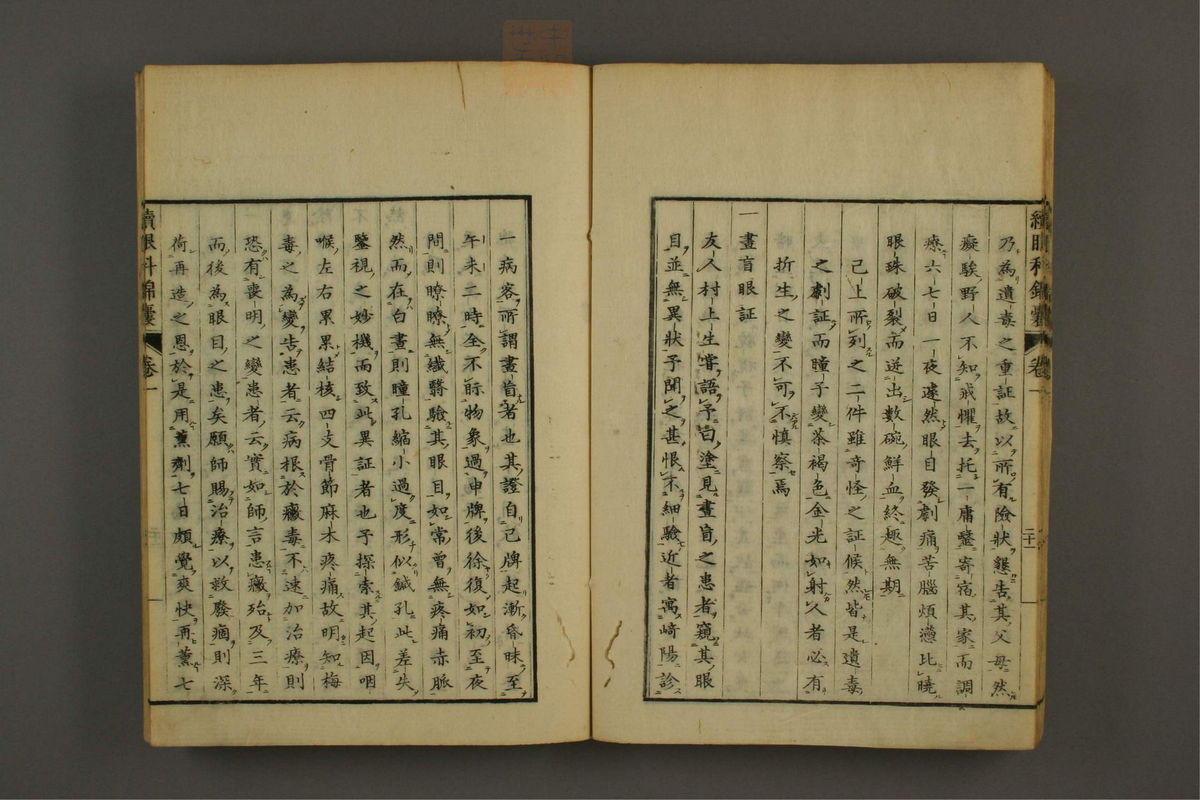 乃為遺毒之重証故以所有險狀懇告其父母然
癡騃野人不知戒懼去托一庸醫寄宿其家而調
療六七日一夜遽然眼目發劇痛苦腦煩懣比曉
眼珠破裂而迸出數碗鮮血終趣無期
已上所列之二件雖奇怪之証候然皆是遺毒
之劇証而瞳子變茶褐色金光如射人者必有
折生之變不可不慎察焉
一晝盲眼証
友人村上生嘗語予曰塗見晝盲之患者窺其眼
目並無異狀予聞之甚恨不細驗近者寓崎陽診
續眼科錦囊 卷一
一病客所謂晝盲者也其證自己牌起漸昏昧至
午未二時全不眎物象過申牌後徐復如初至夜
間則瞭瞭無纖翳驗其眼目如常曾無疼痛赤脈
然而在白晝則瞳孔縮小過度形似鍼孔此差失
鑒視之妙機而致此異証者也予探索其起因咽
喉左右累累結核四支骨節麻木疼痛故明知梅
毒之為變告患者云病根於黴毒不速加治療則
恐有喪明之變患者云實如師言患黴殆及三年
而後為眼目之患矣願師賜治療以救廢痼則深
荷再造之恩於是用薰劑七日頗覺爽快再薰七
續眼科錦囊 卷一